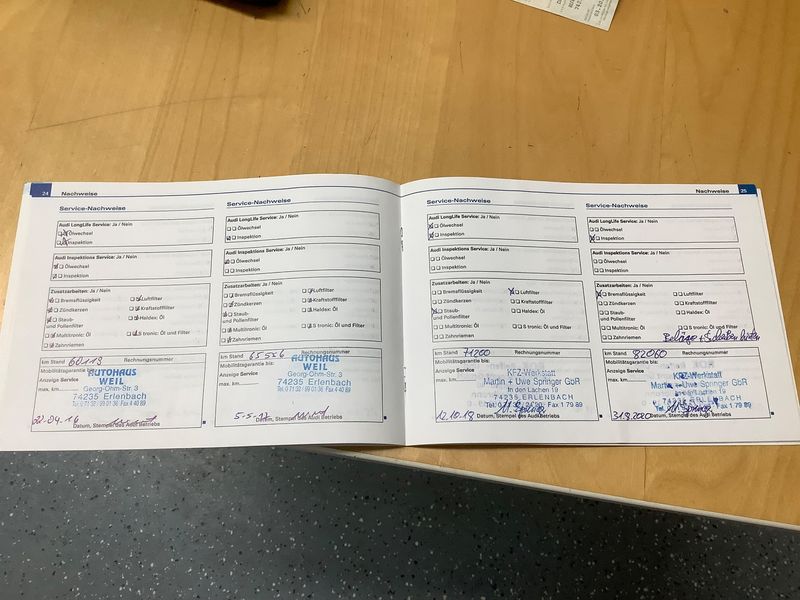 24 Nachweise
Service-Nachweise
Audi LongLife Service: Ja / Nein
Ölwechsel
Inspektion
Audi Inspektions Service: Ja / Nein
Ölwechsel
Inspektion
Zusatzarbeiten: Ja / Nein
Bremsflüssigkeit Luftfilter
Zündkerzen Kraftstofffilter
Staub- und Pollenfilter Haldex: Öl
Multitronic: Öl S tronic: Öl und Filter
Zahnriemen
km Stand 60113 Rechnungsnummer
Mobilitätsgarantie bis:
Anzeige Service
max. km
AUTOHAUS
WEIL
Georg-Ohm-Str. 3
74235 Erlenbach
Tel. 0 71 32 / 99 01 36 Fax 4 40 89
22.04.16
Datum, Stempel des Audi Betriebs
Service-Nachweise
Audi LongLife Service: Ja / Nein
Ölwechsel
Inspektion
Audi Inspektions Service: Ja / Nein
Ölwechsel
Inspektion
Zusatzarbeiten: Ja / Nein
Bremsflüssigkeit Luftfilter
Zündkerzen Kraftstofffilter
Staub- und Pollenfilter Haldex: Öl
Multitronic: Öl S tronic: Öl und Filter
Zahnriemen
km Stand 65556 Rechnungsnummer
Mobilitätsgarantie bis:
Anzeige Service
max. km
AUTOHAUS
WEIL
Georg-Ohm-Str. 3
74235 Erlenbach
Tel. 0 71 32 / 99 01 36 Fax 4 40 89
5-5-17
Datum, Stempel des Audi Betriebs
Nachweise 25
Service-Nachweise
Audi LongLife Service: Ja / Nein
Ölwechsel
Inspektion
Audi Inspektions Service: Ja / Nein
Ölwechsel
Inspektion
Zusatzarbeiten: Ja / Nein
Bremsflüssigkeit Luftfilter
Zündkerzen Kraftstofffilter
Staub- und Pollenfilter Haldex: Öl
Multitronic: Öl S tronic: Öl und Filter
Zahnriemen
km Stand 71200 Rechnungsnummer
Mobilitätsgarantie bis:
Anzeige Service
max. km
KFZ-Werkstatt
Martin + Uwe Springer GbR
In den Lachen 19
74235 ERLENBACH
Fax 1 79 89
12.10.18
Datum, Stempel des Audi Betriebs
Service-Nachweise
Audi LongLife Service: Ja / Nein
Ölwechsel
Inspektion
Audi Inspektions Service: Ja / Nein
Ölwechsel
Inspektion
Zusatzarbeiten: Ja / Nein
Bremsflüssigkeit Luftfilter
Zündkerzen Kraftstofffilter
Staub- und Pollenfilter Haldex: Öl
Multitronic: Öl S tronic: Öl und Filter
Zahnriemen Beläge + Scheiben hinten
km Stand 82060 Rechnungsnummer
Mobilitätsgarantie bis:
Anzeige Service
max. km
KFZ-Werkstatt
Martin + Uwe Springer GbR
In den Lachen 19
74235 ERLENBACH
Fax 1 79 89
31.8.2020
Datum, Stempel des Audi Betriebs